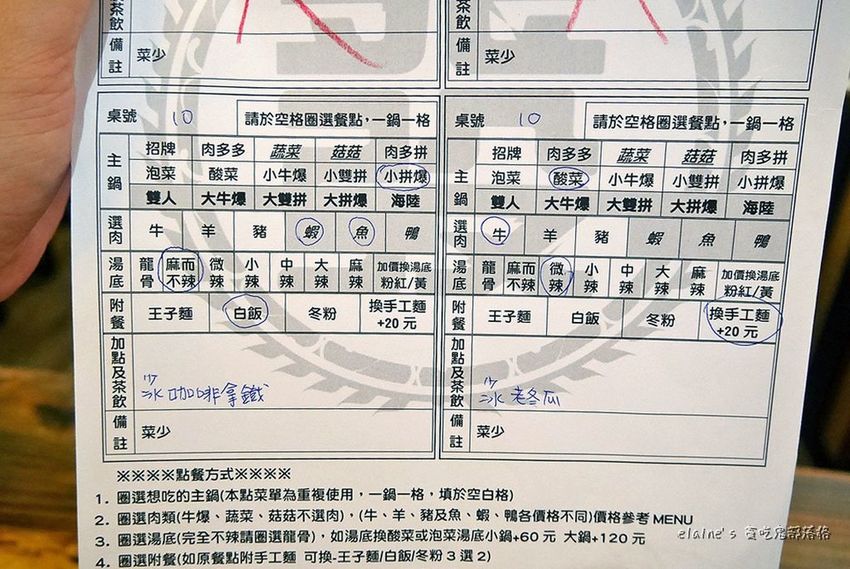 茶飲
備註 菜少
茶飲
備註 菜少
桌號 10 請於空格圈選餐點,一鍋一格
主鍋 招牌 肉多多 蔬菜 菇菇 肉多拼
泡菜 酸菜 小牛爆 小雙拼 小拼爆
雙人 大牛爆 大雙拼 大拼爆 海陸
選肉 牛 羊 豬 蝦 魚 鴨
湯底 龍骨 麻而不辣 微辣 小辣 中辣 大辣 麻辣 加價換湯底 粉紅/黃
附餐 王子麵 白飯 冬粉 換手工麵 +20 元
加點及茶飲 少冰咖啡拿鐵
備註 菜少
桌號 10 請於空格圈選餐點,一鍋一格
主鍋 招牌 肉多多 蔬菜 菇菇 肉多拼
泡菜 酸菜 小牛爆 小雙拼 小拼爆
雙人 大牛爆 大雙拼 大拼爆 海陸
選肉 牛 羊 豬 蝦 魚 鴨
湯底 龍骨 麻而不辣 微辣 小辣 中辣 大辣 麻辣 加價換湯底 粉紅/黃
附餐 王子麵 白飯 冬粉 換手工麵 +20 元
加點及茶飲 少冰老冬瓜
備註 菜少
※※※※點餐方式※※※※
1. 圈選想吃的主鍋(本點菜單為重複使用,一鍋一格,填於空白格)
2. 圈選肉類(牛爆、蔬菜、菇菇不選肉),(牛、羊、豬及魚、蝦、鴨各價格不同)價格參考 MENU
3. 圈選湯底(完全不辣請圈選龍骨),如湯底換酸菜或泡菜湯底小鍋+60 元 大鍋+120 元
4. 圈選附餐(如原餐點附手工麵 可換-王子麵/白飯/冬粉 3 選 2)
elaine's 貪吃鬼部落格